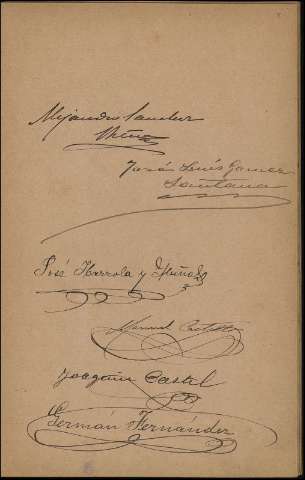 Alejandro Sanchez
José Luis Gomez
Santana
José Ibarrola y Muñoz
Manuel Castillo
Joaquin Castel
Germán Fernández